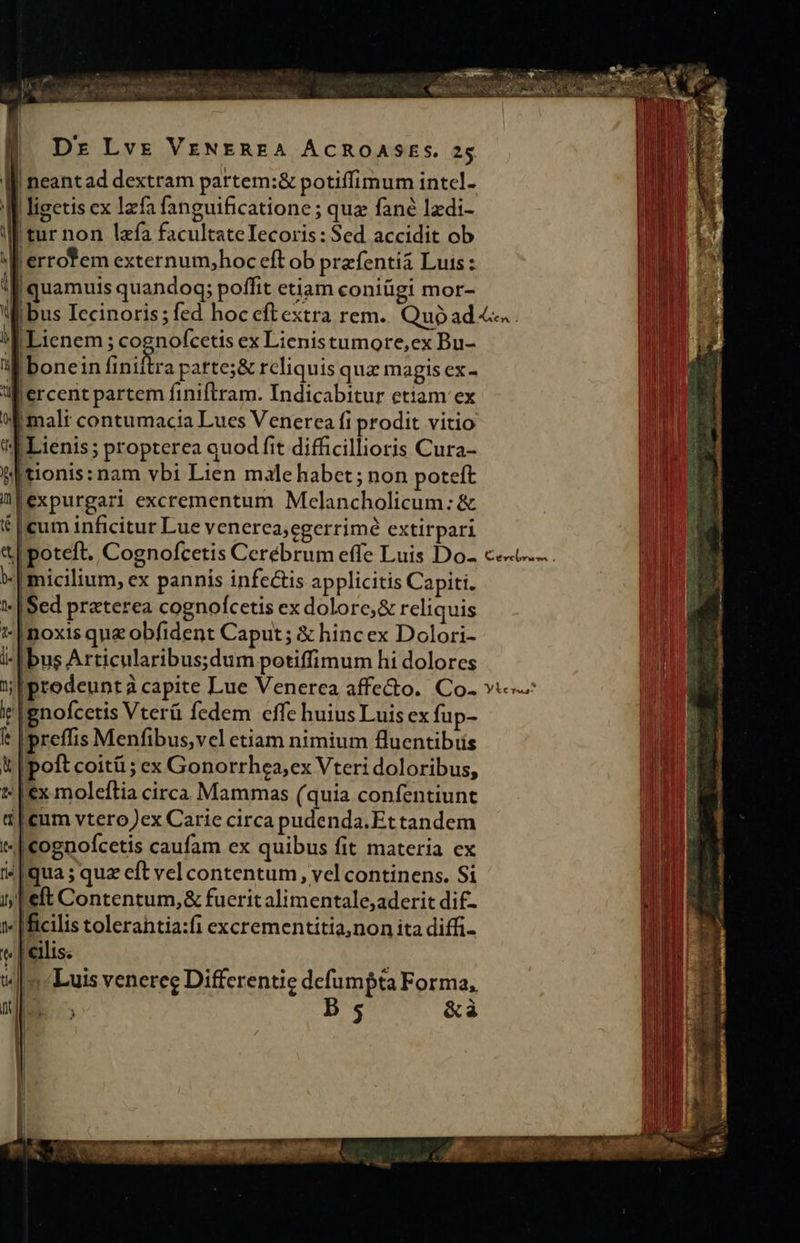 De Lve Venerea Acroases. 25
neant ad dextram partem:& potiſſimum intel-
ligetis ex læſa ſanguificatione; quæ ſanè lædi-
tur non læſa facultate Iecoris: Sed accidit ob
errorem externum,hoc eſt ob præſentiã Luis:
quamuis quandoq; poſſit etiam coniũgi mor-
bus Iecinoris; ſed hoc eſt extra rem. Quò ad
Lienem; cognoſcetis ex Lienis tumore,ex Bu-
bone in ſiniſtra parte;& reliquis quæ magis ex-
ercent partem ſiniſtram. Indicabitur etiam ex
mali contumacia Lues Venerea ſi prodit vitio
Lienis; propterea quod fit difficillioris Cura-
tionis: nam vbi Lien male habet; non poteſt
expurgari excrementum Melancholicum: &
cum inficitur Lue venerea,ęgerrimè extirpari
poteſt. Cognoſcetis Cerebrum eſſe Luis Do- Cerebrum.
micilium, ex pannis infectis applicitis Capiti.
Sed præterea cognoſcetis ex dolore,& reliquis
noxis quæ obſident Caput; & hinc ex Dolori-
bus Articularibus;dum potiſſimum hi dolores
prodeunt à capite Lue Venerea affecto. Co- Vterus
gnoſcetis Vterũ ſedem eſſe huius Luis ex ſup-
preſſis Menſibus,vel etiam nimium fluentibus
poſt coitũ; ex Gonorrhęa,ex Vteri doloribus,
ex moleſtia circa Mammas (quia conſentiunt
cum vtero)ex Carie circa pudenda.Et tandem
cognoſcetis cauſam ex quibus fit materia ex
qua; quæ eſt vel contentum, vel continens. Si
eſt Contentum,& fuerit alimentale,aderit dif-
ficilis tolerantia:ſi excrementitia,non ita diffi-
cilis.
Luis venereę Differentię deſumpta Forma,
B 5 & à